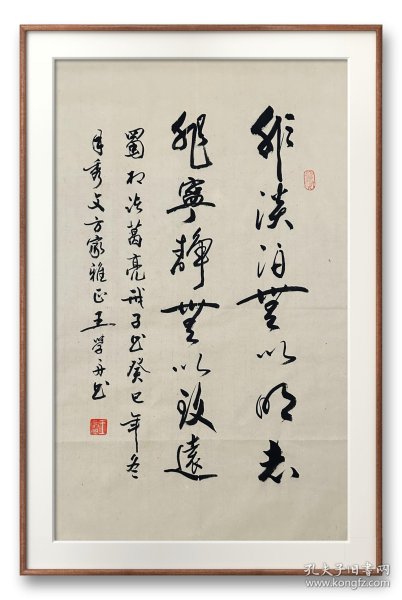 非淡泊無以明志
非寧靜無以致遠
蜀相诸葛亮戒子书癸巳年冬
秀文方家雅正王学舟书
孔夫子旧书网
www.kongfz.com